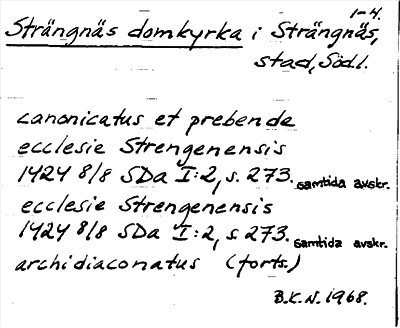 1-4.
Strängnäs domkyrka i Strängnäs,
stad, Södl.
canonicatus et prebende
ecclesie Strengenensis
1424 8/8 SDa I:2, s. 273. samtida avskr.
ecclesie Strengenensis
1424 8/8 SDa I:2, s. 273. samtida avskr.
archidiaconatus (forts.)
B.K.N. 1968.